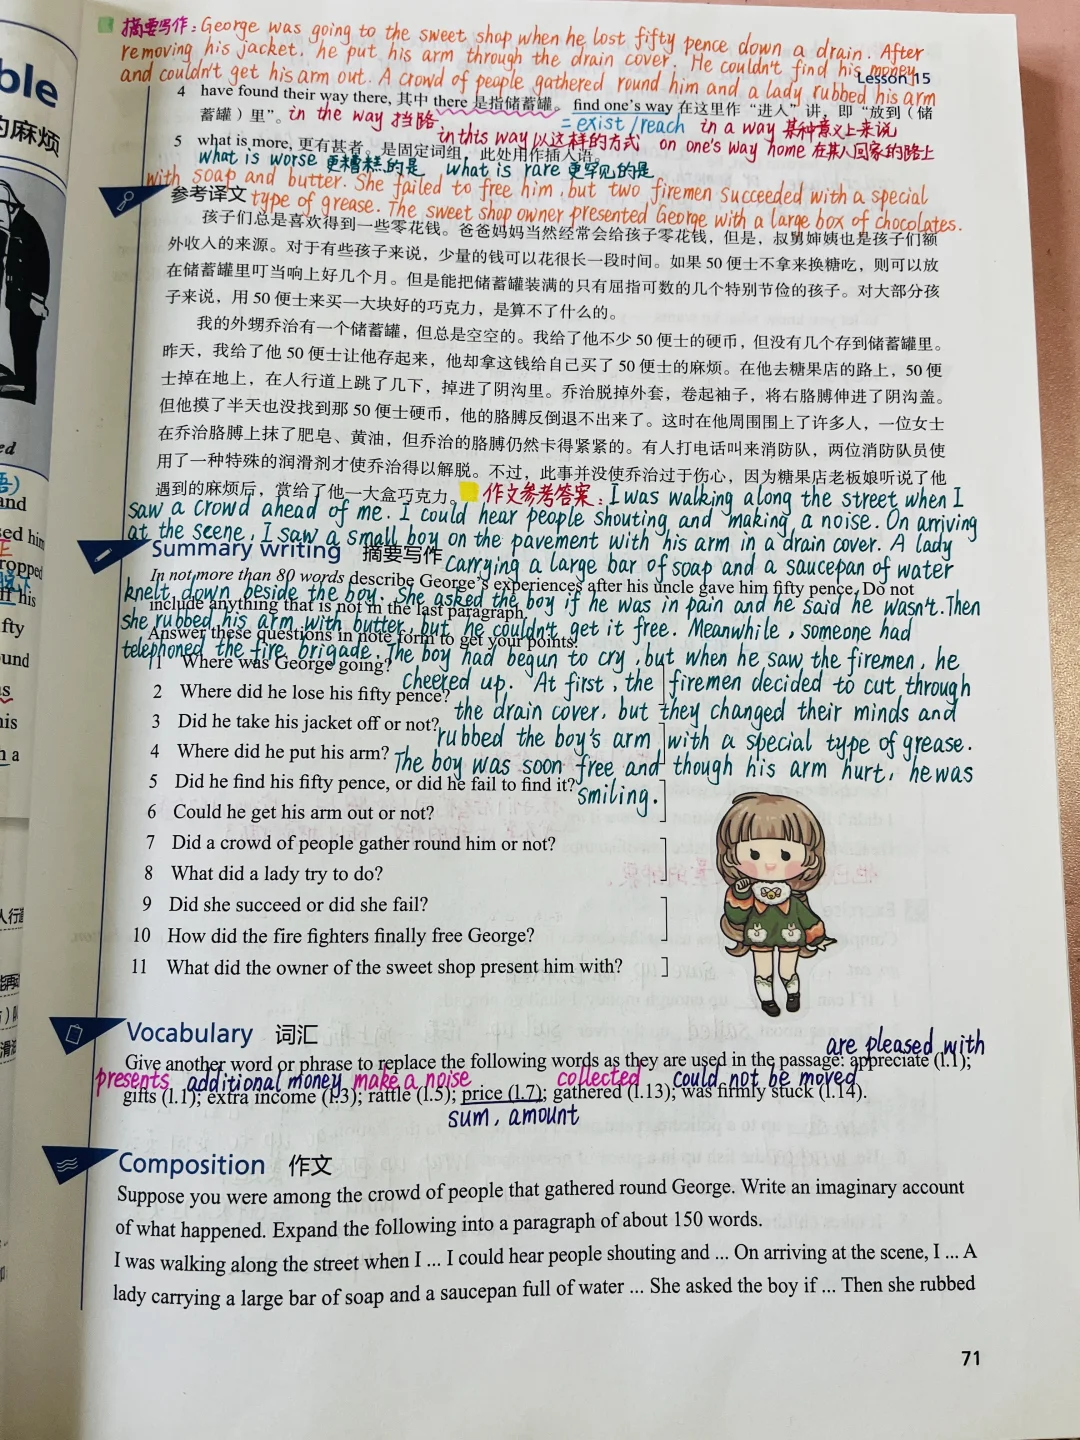 摘要写作：George was going to the sweet shop when he lost fifty pence down a drain. After
removing his jacket, he put his arm through the drain cover. He couldn't find his money
and couldn't get his arm out. A crowd of people gathered round him and a lady rubbed his arm
Lesson 15
4 have found their way there, 其中 there 是指储蓄罐。find one's way 在这里作“进入”讲，即“放到（储
蓄罐）里”。in the way 挡路 = exist/reach in a way 某种意义上来说
in this way 以这样的方式 on one's way home 在某人回家的路上
5 what is more, 更有甚者。是固定词组，此处用作插入语。
what is worse 更糟糕的是 what is rare 更罕见的是
with soap and butter. She failed to free him, but two firemen succeeded with a special
参考译文 type of grease. The sweet shop owner presented George with a large box of chocolates.
孩子们总是喜欢得到一些零花钱。爸爸妈妈当然经常会给孩子零花钱，但是，叔舅婶姨也是孩子们额
外收入的来源。对于有些孩子来说，少量的钱可以花很长一段时间。如果 50 便士不拿来换糖吃，则可以放
在储蓄罐里叮当响上好几个月。但是能把储蓄罐装满的只有屈指可数的几个特别节俭的孩子。对大部分孩
子来说，用 50 便士来买一大块好的巧克力，是算不了什么的。
我的外甥乔治有一个储蓄罐，但总是空空的。我给了他不少 50 便士的硬币，但没有几个存到储蓄罐里。
昨天，我给了他 50 便士让他存起来，他却拿这钱给自己买了 50 便士的麻烦。在他去糖果店的路上，50 便
士掉在地上，在人行道上跳了几下，掉进了阴沟里。乔治脱掉外套，卷起袖子，将右胳膊伸进了阴沟盖。
但他摸了半天也没找到那 50 便士硬币，他的胳膊反倒退不出来了。这时在他周围围上了许多人，一位女士
在乔治胳膊上抹了肥皂、黄油，但乔治的胳膊仍然卡得紧紧的。有人打电话叫来消防队，两位消防队员使
用了一种特殊的润滑剂才使乔治得以解脱。不过，此事并没使乔治过于伤心，因为糖果店老板娘听说了他
遇到的麻烦后，赏给了他一大盒巧克力。作文参考答案：I was walking along the street when I
saw a crowd ahead of me. I could hear people shouting and making a noise. On arriving
at the scene, I saw a small boy on the pavement with his arm in a drain cover. A lady
Summary writing 摘要写作 carrying a large bar of soap and a saucepan of water
In not more than 80 words describe George's experiences after his uncle gave him fifty pence. Do not
knelt down beside the boy. She asked the boy if he was in pain and he said he wasn't. Then
include anything that is not in the last paragraph.
she rubbed his arm with butter, but he couldn't get it free. Meanwhile, someone had
Answer these questions in note form to get your points:
telephoned the fire brigade. The boy had begun to cry, but when he saw the firemen, he
1 Where was George going?
cheered up. At first, the firemen decided to cut through
2 Where did he lose his fifty pence?
the drain cover, but they changed their minds and
3 Did he take his jacket off or not?
rubbed the boy's arm with a special type of grease.
4 Where did he put his arm?
The boy was soon free and though his arm hurt, he was
5 Did he find his fifty pence, or did he fail to find it?
smiling.
6 Could he get his arm out or not?
7 Did a crowd of people gather round him or not?
8 What did a lady try to do?
9 Did she succeed or did she fail?
10 How did the fire fighters finally free George?
11 What did the owner of the sweet shop present him with?
Vocabulary 词汇
are pleased with
Give another word or phrase to replace the following words as they are used in the passage: appreciate (l.1);
presents additional money make a noise collected could not be moved
gifts (l.1); extra income (l.3); rattle (l.5); price (l.7); gathered (l.13); was firmly stuck (l.14).
sum, amount
Composition 作文
Suppose you were among the crowd of people that gathered round George. Write an imaginary account
of what happened. Expand the following into a paragraph of about 150 words.
I was walking along the street when I ... I could hear people shouting and ... On arriving at the scene, I ... A
lady carrying a large bar of soap and a saucepan full of water ... She asked the boy if ... Then she rubbed
71